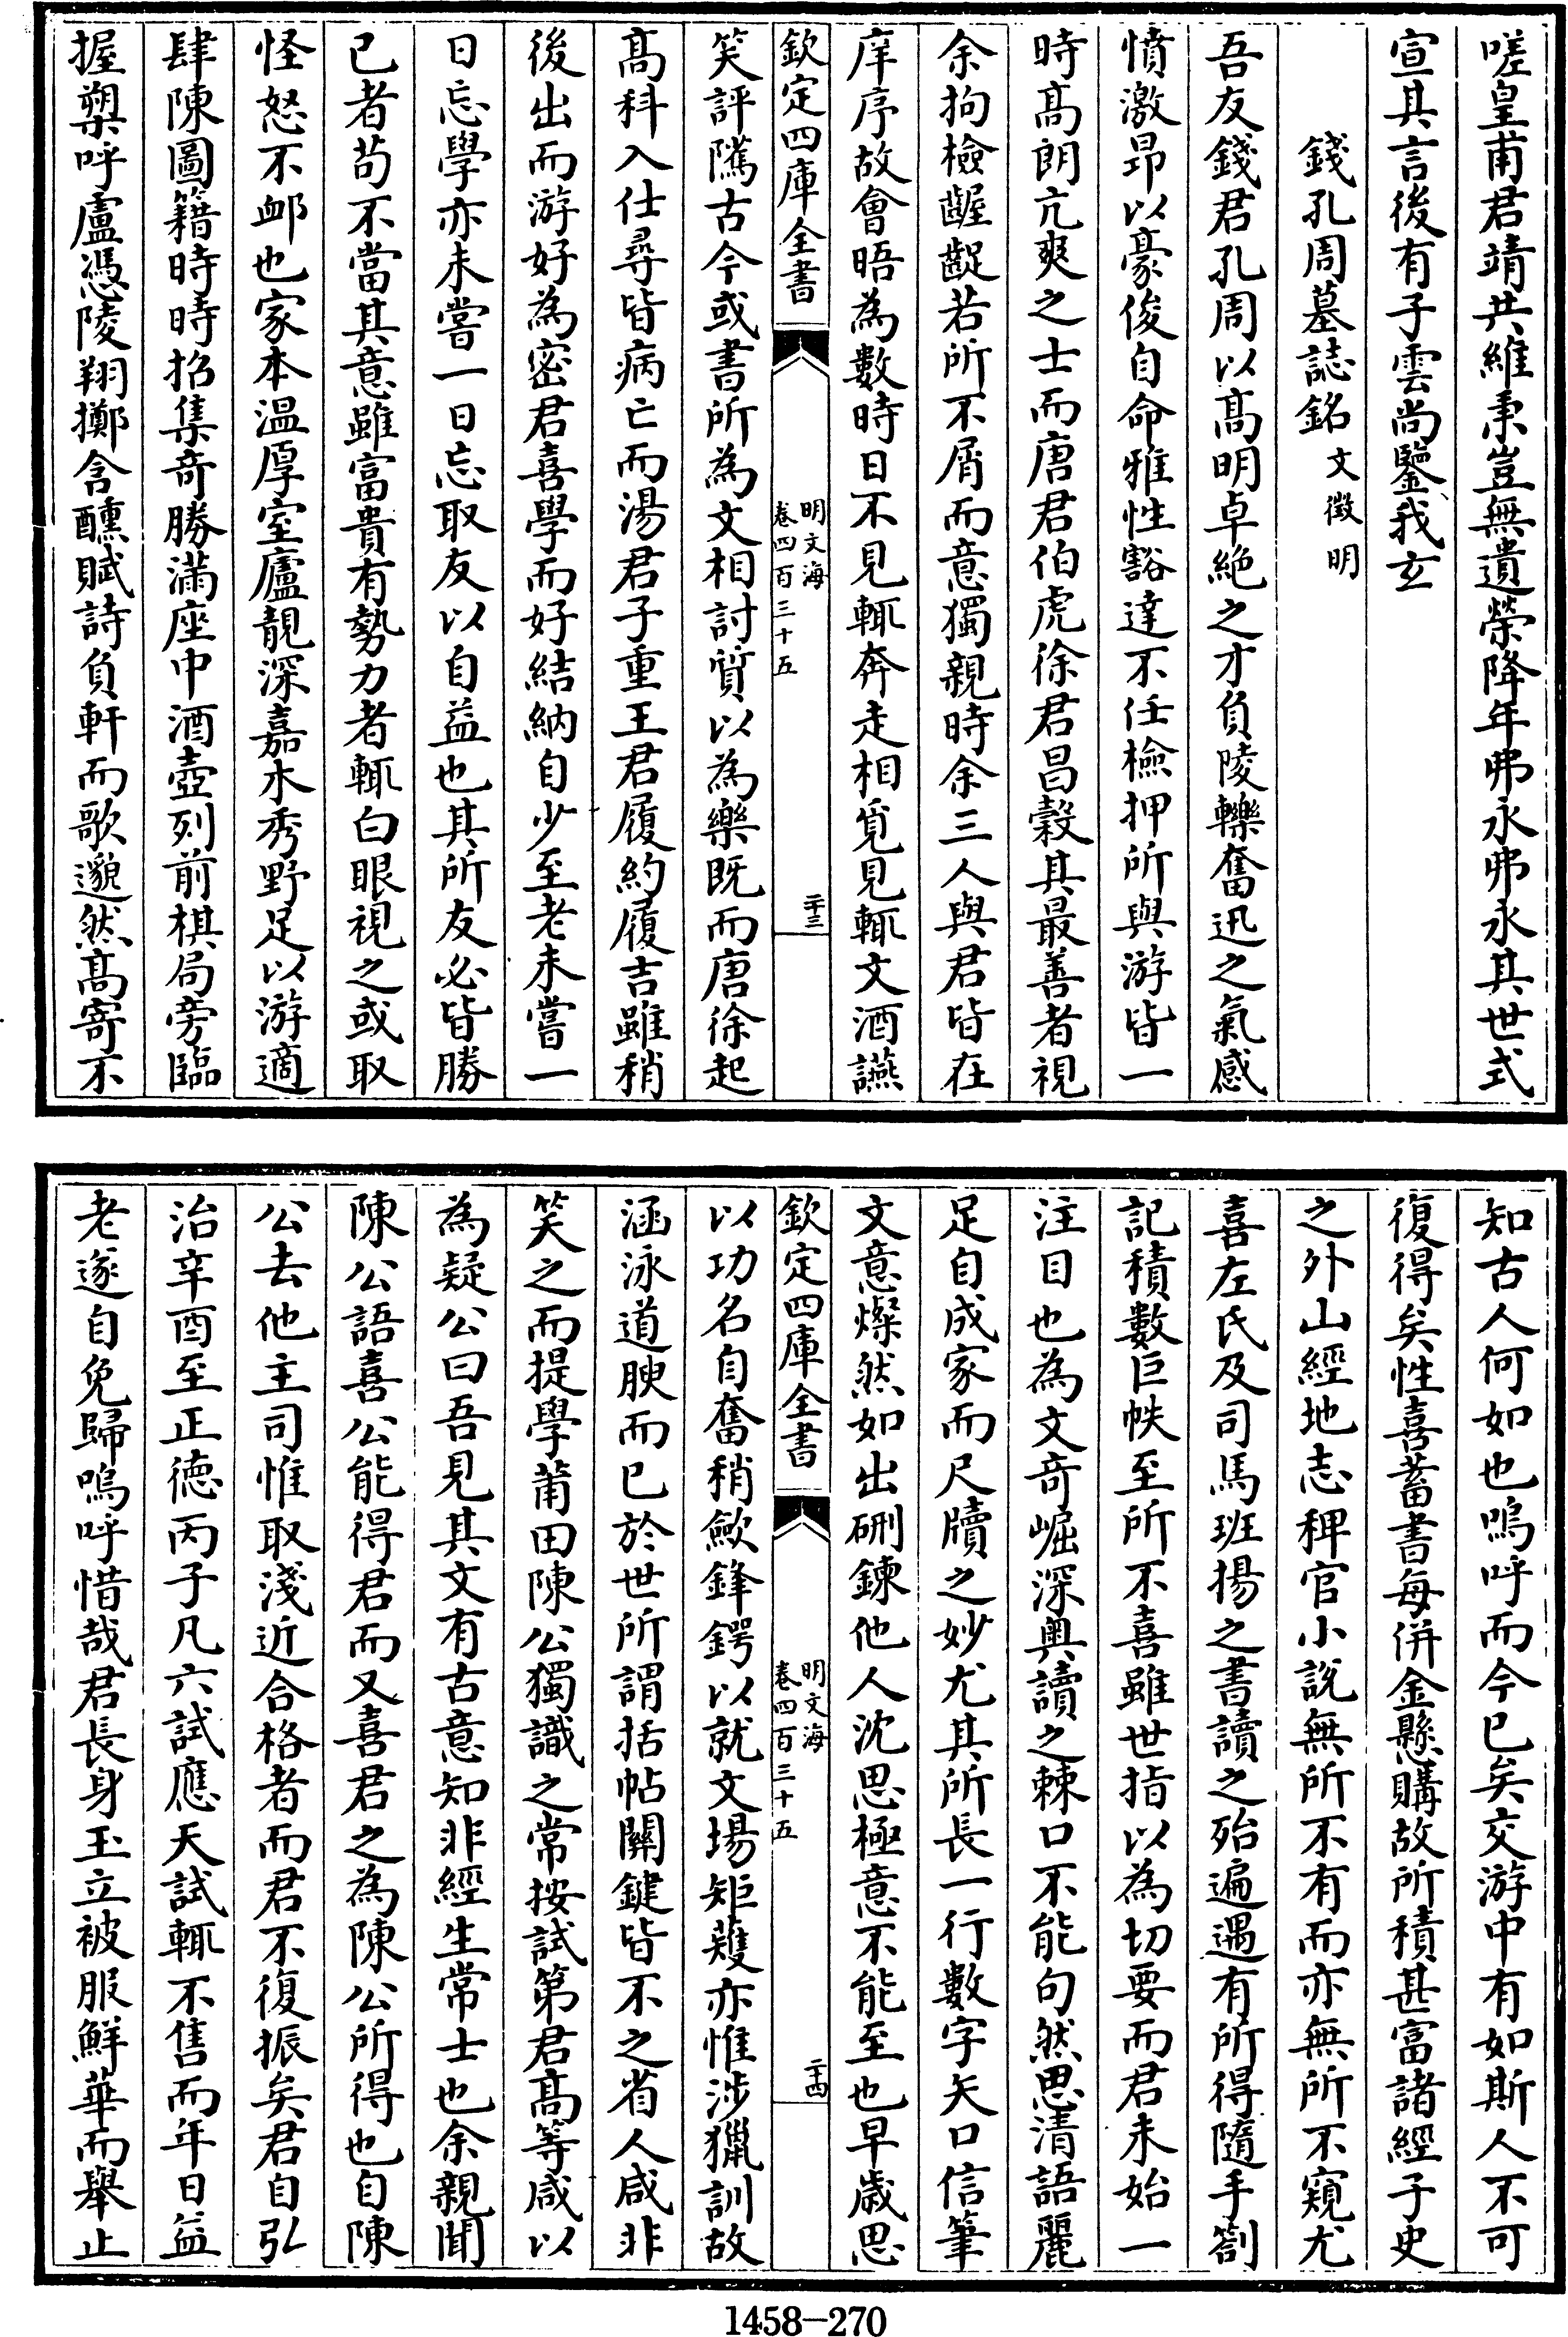 嗟皇甫君靖共維秉豈無遺榮降年弗永弗永其世式
宣其言後有子雲尚鑒我玄
錢孔周墓誌銘　文徵明
吾友錢君孔周以髙明卓絶之才負陵轢奮迅之氣感
憤激昂以豪俊自命雅性豁達不任檢押所與游皆一
時髙朗亢爽之士而唐君伯虎徐君昌榖其最善者視
余拘檢齷齪若所不屑而意獨親時余三人與君皆在
庠序故會晤為數時日不見輒奔走相覓見輒文酒讌
欽定四庫全書
明文海
卷四百三十五
二十三
笑評隲古今或書所為文相討質以為樂既而唐徐起
髙科入仕尋皆病亡而湯君子重王君履約履吉雖稍
後出而游好為密君喜學而好結納自少至老未嘗一
日忘學亦未嘗一日忘取友以自益也其所友必皆勝
已者茍不當其意雖富貴有勢力者輒白眼視之或取
怪怒不衈也家本温厚室廬靚深嘉木秀野足以游適
肆陳圖籍時時招集竒勝滿座中酒壺列前棋局旁臨
握槊呼盧憑陵翔擲含醺賦詩負軒而歌邈然髙寄不
知古人何如也嗚呼而今已矣交游中有如斯人不可
復得矣性喜蓄書每併金懸購故所積甚富諸經子史
之外山經地志稗官小説無所不有而亦無所不窺尤
喜左氏及司馬班揚之書讀之殆遍遇有所得隨手劄
記積數巨帙至所不喜雖世指以為切要而君未始一
注目也為文竒崛深奥讀之棘口不能句然思清語麗
足自成家而尺牘之妙尤其所長一行數字矢口信筆
文意燦然如出硎鍊他人沈思極意不能至也早歲思
欽定四庫全書
明文海
卷四百三十五
二十四
以功名自奮稍歛鋒鍔以就文場矩矱亦惟涉獵訓故
涵泳道腴而已於世所謂括帖關鍵皆不之省人咸非
笑之而提學莆田陳公獨識之常按試第君髙等咸以
為疑公曰吾見其文有古意知非經生常士也余親聞
陳公語喜公能得君而又喜君之為陳公所得也自陳
公去他主司惟取淺近合格者而君不復振矣君自弘
治辛酉至正徳丙子凡六試應天試輒不售而年日益
老遂自免歸嗚呼惜哉君長身玉立被服鮮華而舉止
1458-270